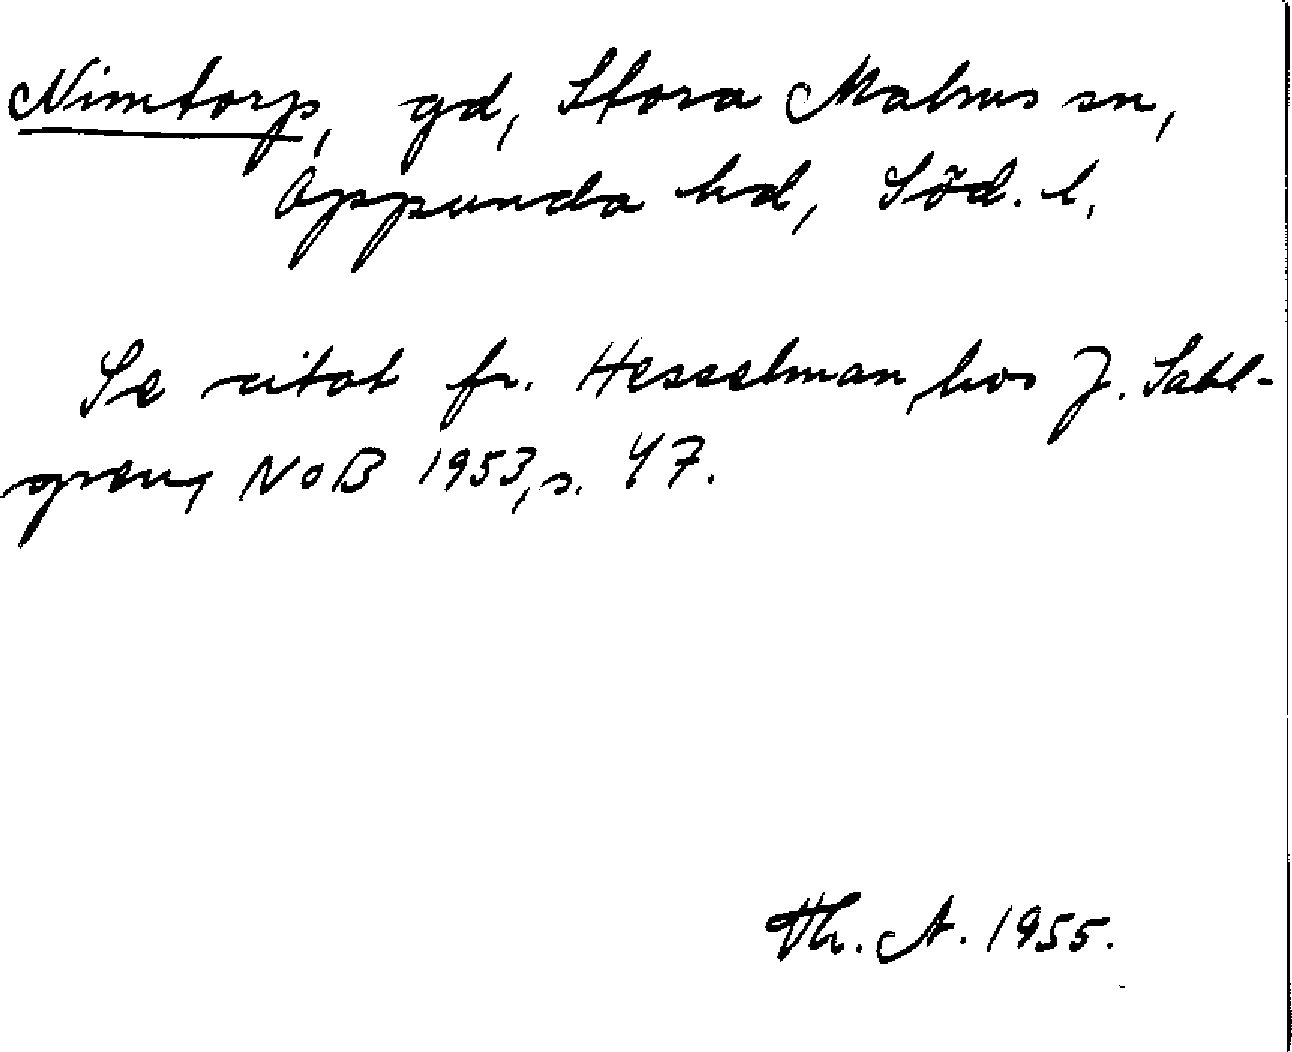 Nimtorp, gd, Stora Malms sn,
Oppunda hd, Söd. l.
Se citat fr. Hesselman, hos J. Sahl-
gren, NoB 1953, s. 47.
Th. A. 1955.